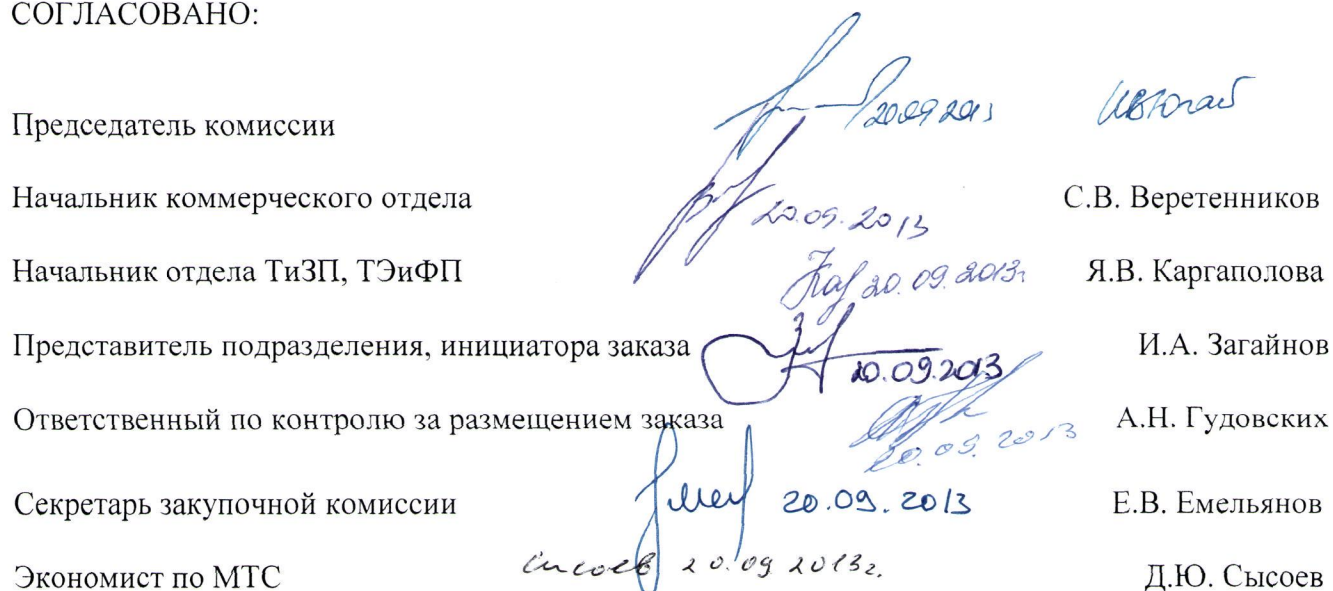 СОГЛАСОВАНО:
Председатель комиссии 20.09.2013
Начальник коммерческого отдела 20.09.2013 С.В. Веретенников
Начальник отдела ТиЗП, ТЭиФП 20.09.2013г. Я.В. Каргаполова
Представитель подразделения, инициатора заказа 20.09.2013 И.А. Загайнов
Ответственный по контролю за размещением заказа 20.09.2013 А.Н. Гудовских
Секретарь закупочной комиссии 20.09.2013 Е.В. Емельянов
Экономист по МТС Сысоев 20.09.2013г. Д.Ю. Сысоев